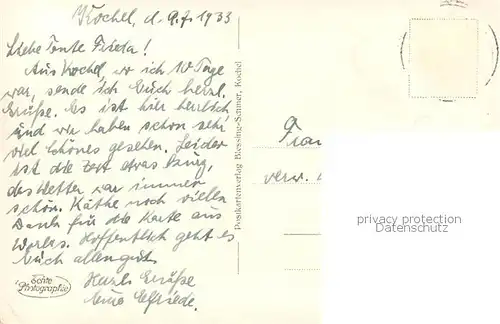 Kochel, d. 9.7.1933
Liebe Tante Frieda!
Aus Kochel, wo ich 10 Tage
war, sende ich Euch herzl.
Grüße. Es ist hier herrlich
und wir haben schon sehr
viel Schönes gesehen. Leider
ist die Zeit etwas kurz,
das Wetter war immer
schön. Käthe noch vielen
Dank für die Karte aus
Hoffentlich geht es
Euch allen gut.
Herzl. Grüße
Elfriede.
Echte
Photographie
Postkartenverlag Blessing-Sanner, Kochel
Frau
verw.
privacy protection
Datenschutz